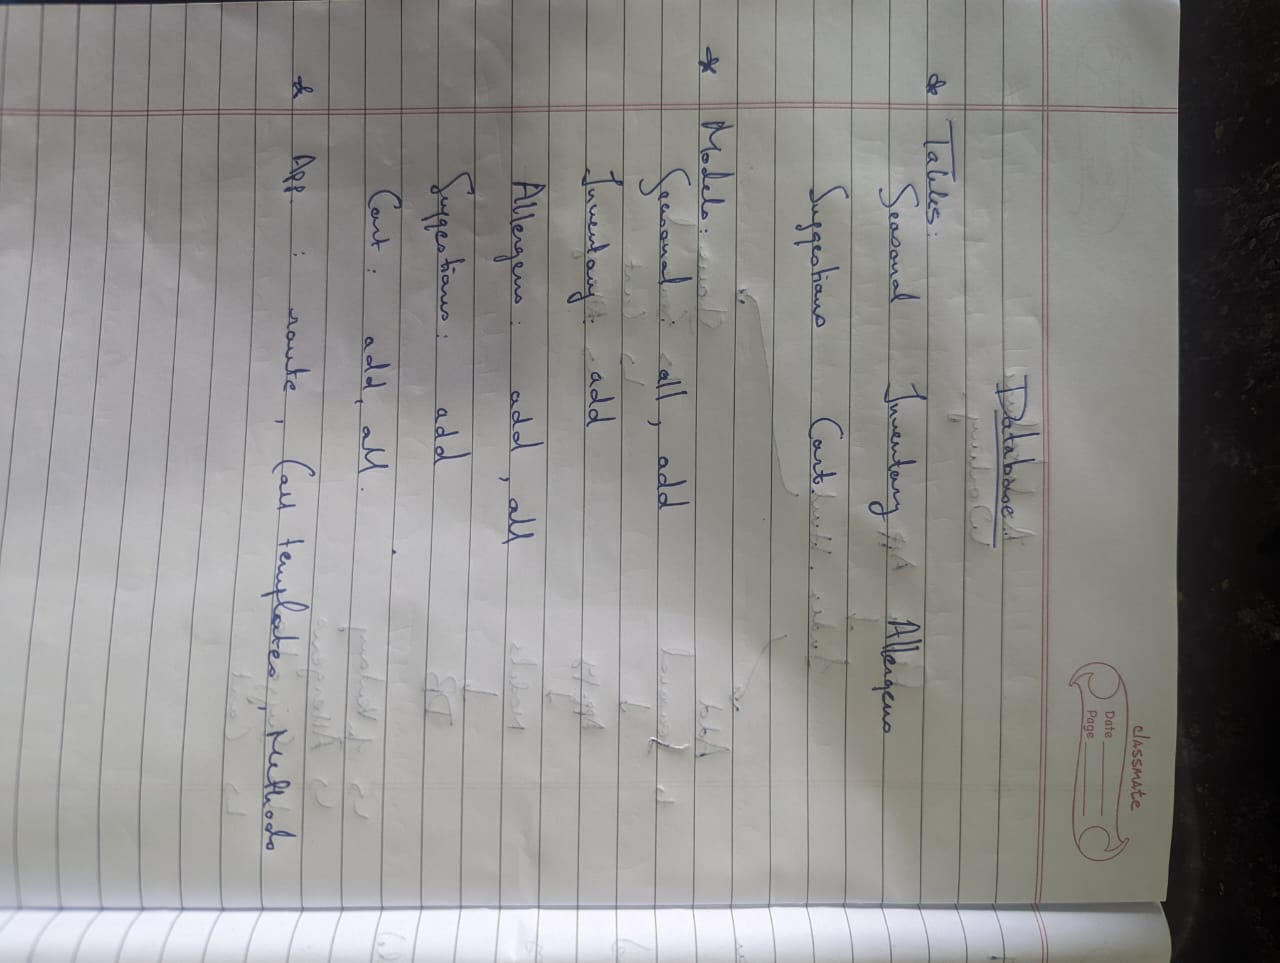 classmate
Date
Page
Database
* Tables:
Seasonal Inventory Allergens
Suggestions Cart.
* Models:
Seasonal : all, add
Inventory : add
Allergens : add, all
Suggestions : add
Cart : add, all.
* App : route, Call templates, Methods